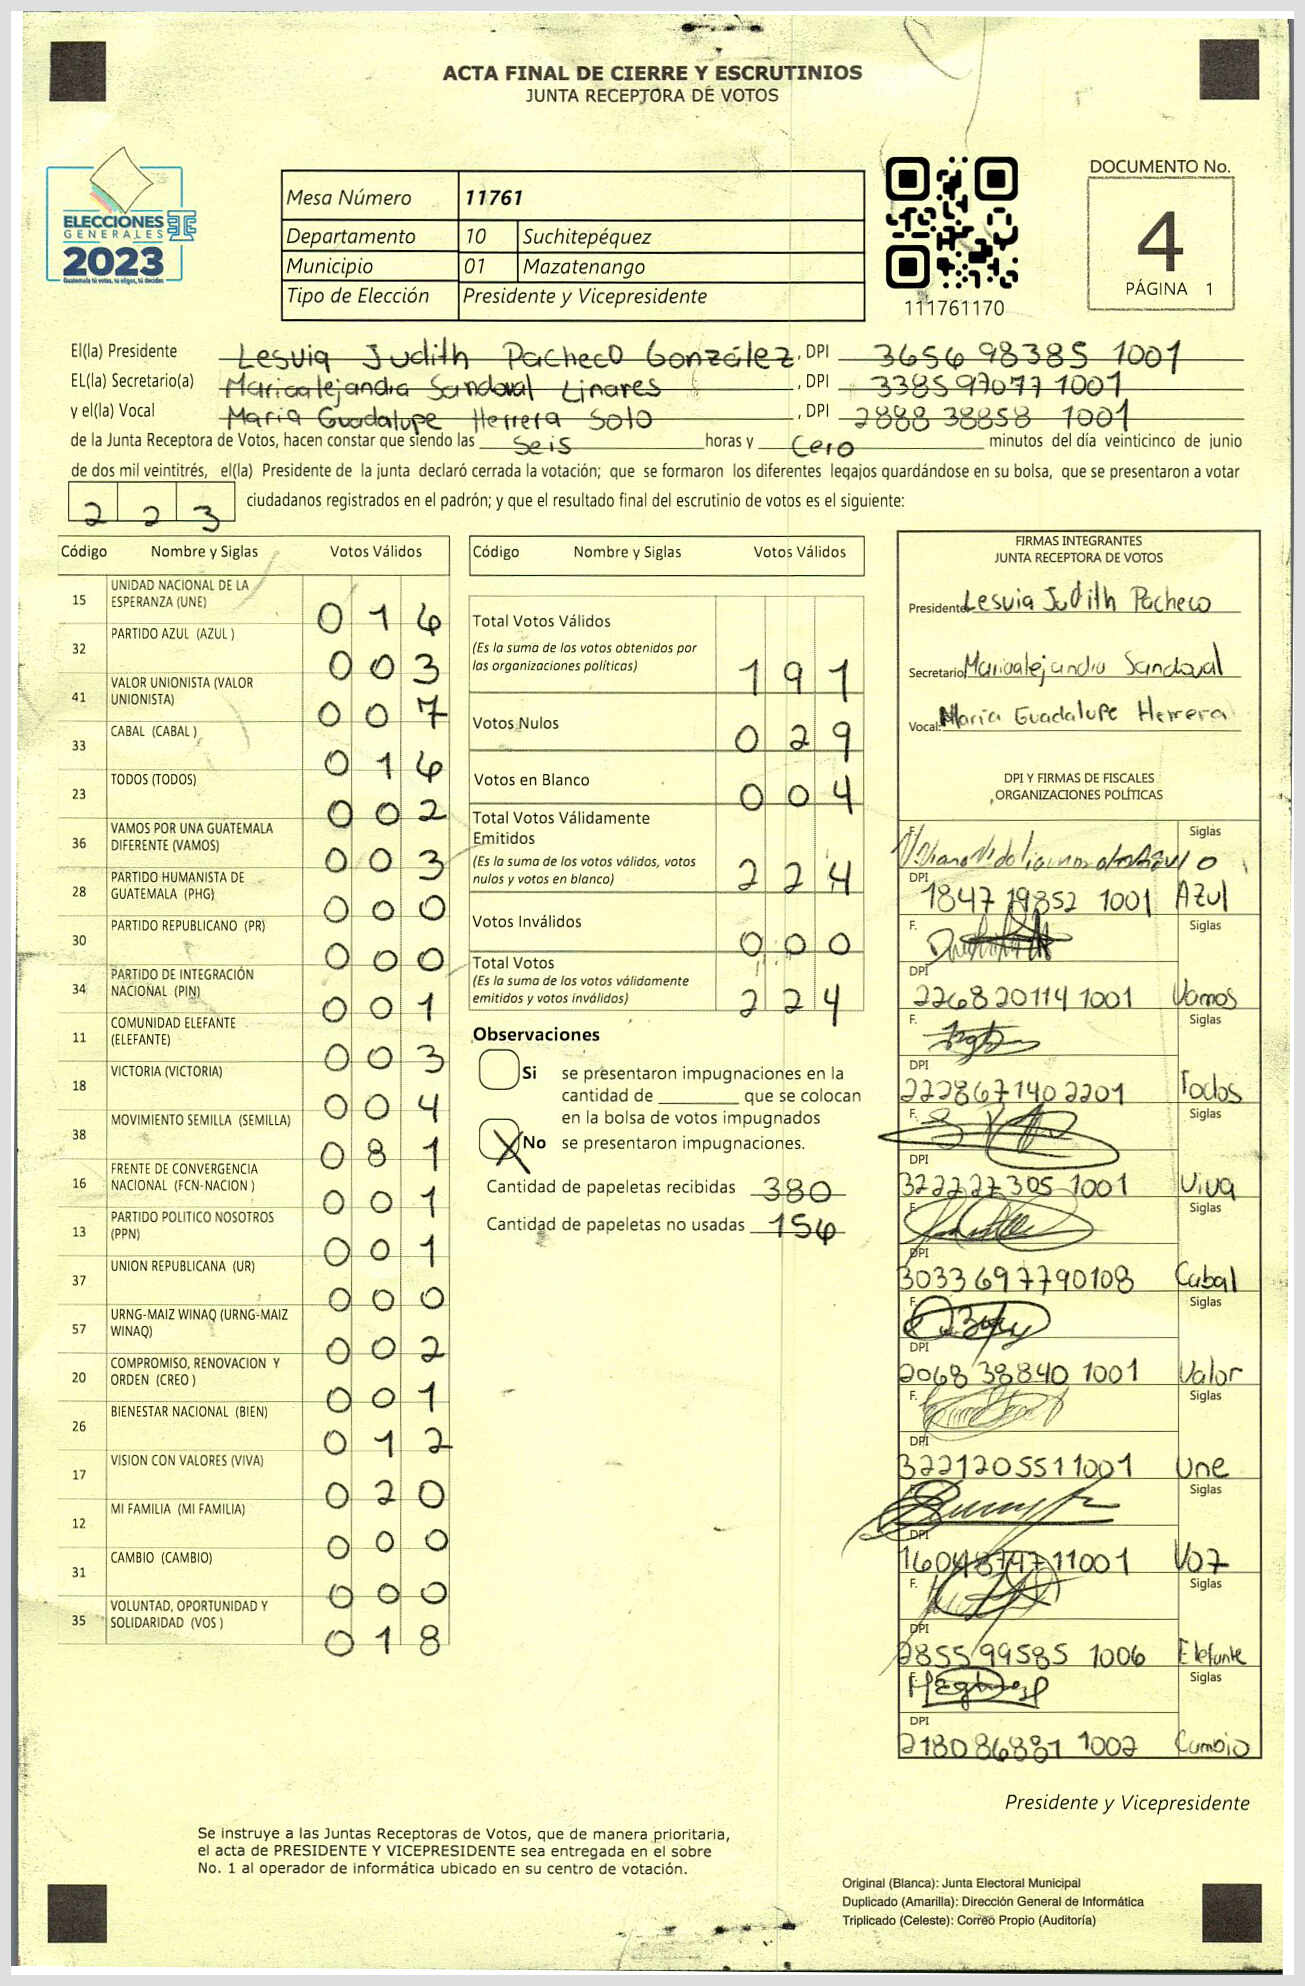 ACTA FINAL DE CIERRE Y ESCRUTINIOS
JUNTA RECEPTORA DE VOTOS
ELECCIONES
GENERALES
2023
Guatemala tú votas, tú eliges, tú decides
Mesa Número 11761
Departamento 10 Suchitepéquez
Municipio 01 Mazatenango
Tipo de Elección Presidente y Vicepresidente
111761170
DOCUMENTO No.
4
PÁGINA 1
El(la) Presidente Lesvia Judith Pacheco González, DPI 3656 98385 1001
EL(la) Secretario(a) Maricalejandra Sandoval Linares, DPI 3385 97077 1001
y el(la) Vocal Maria Guadalupe Herrera Soto, DPI 2888 38858 1001
de la Junta Receptora de Votos, hacen constar que siendo las Seis horas y Cero minutos del día veinticinco de junio
de dos mil veintitrés, el(la) Presidente de la junta declaró cerrada la votación; que se formaron los diferentes legajos guardándose en su bolsa, que se presentaron a votar
2 2 3 ciudadanos registrados en el padrón; y que el resultado final del escrutinio de votos es el siguiente:
Código Nombre y Siglas Votos Válidos
15 UNIDAD NACIONAL DE LA ESPERANZA (UNE) 0 1 6
32 PARTIDO AZUL (AZUL ) 0 0 3
41 VALOR UNIONISTA (VALOR UNIONISTA) 0 0 7
33 CABAL (CABAL ) 0 1 6
23 TODOS (TODOS) 0 0 2
36 VAMOS POR UNA GUATEMALA DIFERENTE (VAMOS) 0 0 3
28 PARTIDO HUMANISTA DE GUATEMALA (PHG) 0 0 0
30 PARTIDO REPUBLICANO (PR) 0 0 0
34 PARTIDO DE INTEGRACIÓN NACIONAL (PIN) 0 0 1
11 COMUNIDAD ELEFANTE (ELEFANTE) 0 0 3
18 VICTORIA (VICTORIA) 0 0 4
38 MOVIMIENTO SEMILLA (SEMILLA) 0 8 1
16 FRENTE DE CONVERGENCIA NACIONAL (FCN-NACION ) 0 0 1
13 PARTIDO POLITICO NOSOTROS (PPN) 0 0 1
37 UNION REPUBLICANA (UR) 0 0 0
57 URNG-MAIZ WINAQ (URNG-MAIZ WINAQ) 0 0 2
20 COMPROMISO, RENOVACION Y ORDEN (CREO ) 0 0 1
26 BIENESTAR NACIONAL (BIEN) 0 1 2
17 VISION CON VALORES (VIVA) 0 2 0
12 MI FAMILIA (MI FAMILIA) 0 0 0
31 CAMBIO (CAMBIO) 0 0 0
35 VOLUNTAD, OPORTUNIDAD Y SOLIDARIDAD (VOS ) 0 1 8
Código Nombre y Siglas Votos Válidos
Total Votos Válidos
(Es la suma de los votos obtenidos por
las organizaciones políticas) 1 9 1
Votos Nulos 0 2 9
Votos en Blanco 0 0 4
Total Votos Válidamente
Emitidos
(Es la suma de los votos válidos, votos
nulos y votos en blanco) 2 2 4
Votos Inválidos 0 0 0
Total Votos
(Es la suma de los votos válidamente
emitidos y votos inválidos) 2 2 4
Observaciones
Si se presentaron impugnaciones en la
cantidad de ________ que se colocan
en la bolsa de votos impugnados
X No se presentaron impugnaciones.
Cantidad de papeletas recibidas 380
Cantidad de papeletas no usadas 156
FIRMAS INTEGRANTES
JUNTA RECEPTORA DE VOTOS
Presidente Lesvia Judith Pacheco
Secretario Maricalejandra Sandoval
Vocal: Maria Guadalupe Herrera
DPI Y FIRMAS DE FISCALES
ORGANIZACIONES POLÍTICAS
F. Siglas
DPI
1847 19852 1001 Azul
F. Siglas
DPI
2268 20114 1001 Vamos
F. Siglas
DPI
2228671402201 Todos
F. Siglas
DPI
322227305 1001 Viva
F. Siglas
DPI
3033697790108 Cabal
F. Siglas
DPI
2068 38840 1001 Valor
F. Siglas
DPI
3221205511001 Une
F. Siglas
DPI
11001 Voz
F. Siglas
DPI
2855 99585 1006 Elefante
F. Siglas
DPI
2180 86881 1002 Cambio
Presidente y Vicepresidente
Se instruye a las Juntas Receptoras de Votos, que de manera prioritaria,
el acta de PRESIDENTE Y VICEPRESIDENTE sea entregada en el sobre
No. 1 al operador de informática ubicado en su centro de votación.
Original (Blanca): Junta Electoral Municipal
Duplicado (Amarilla): Dirección General de Informática
Triplicado (Celeste): Correo Propio (Auditoría)